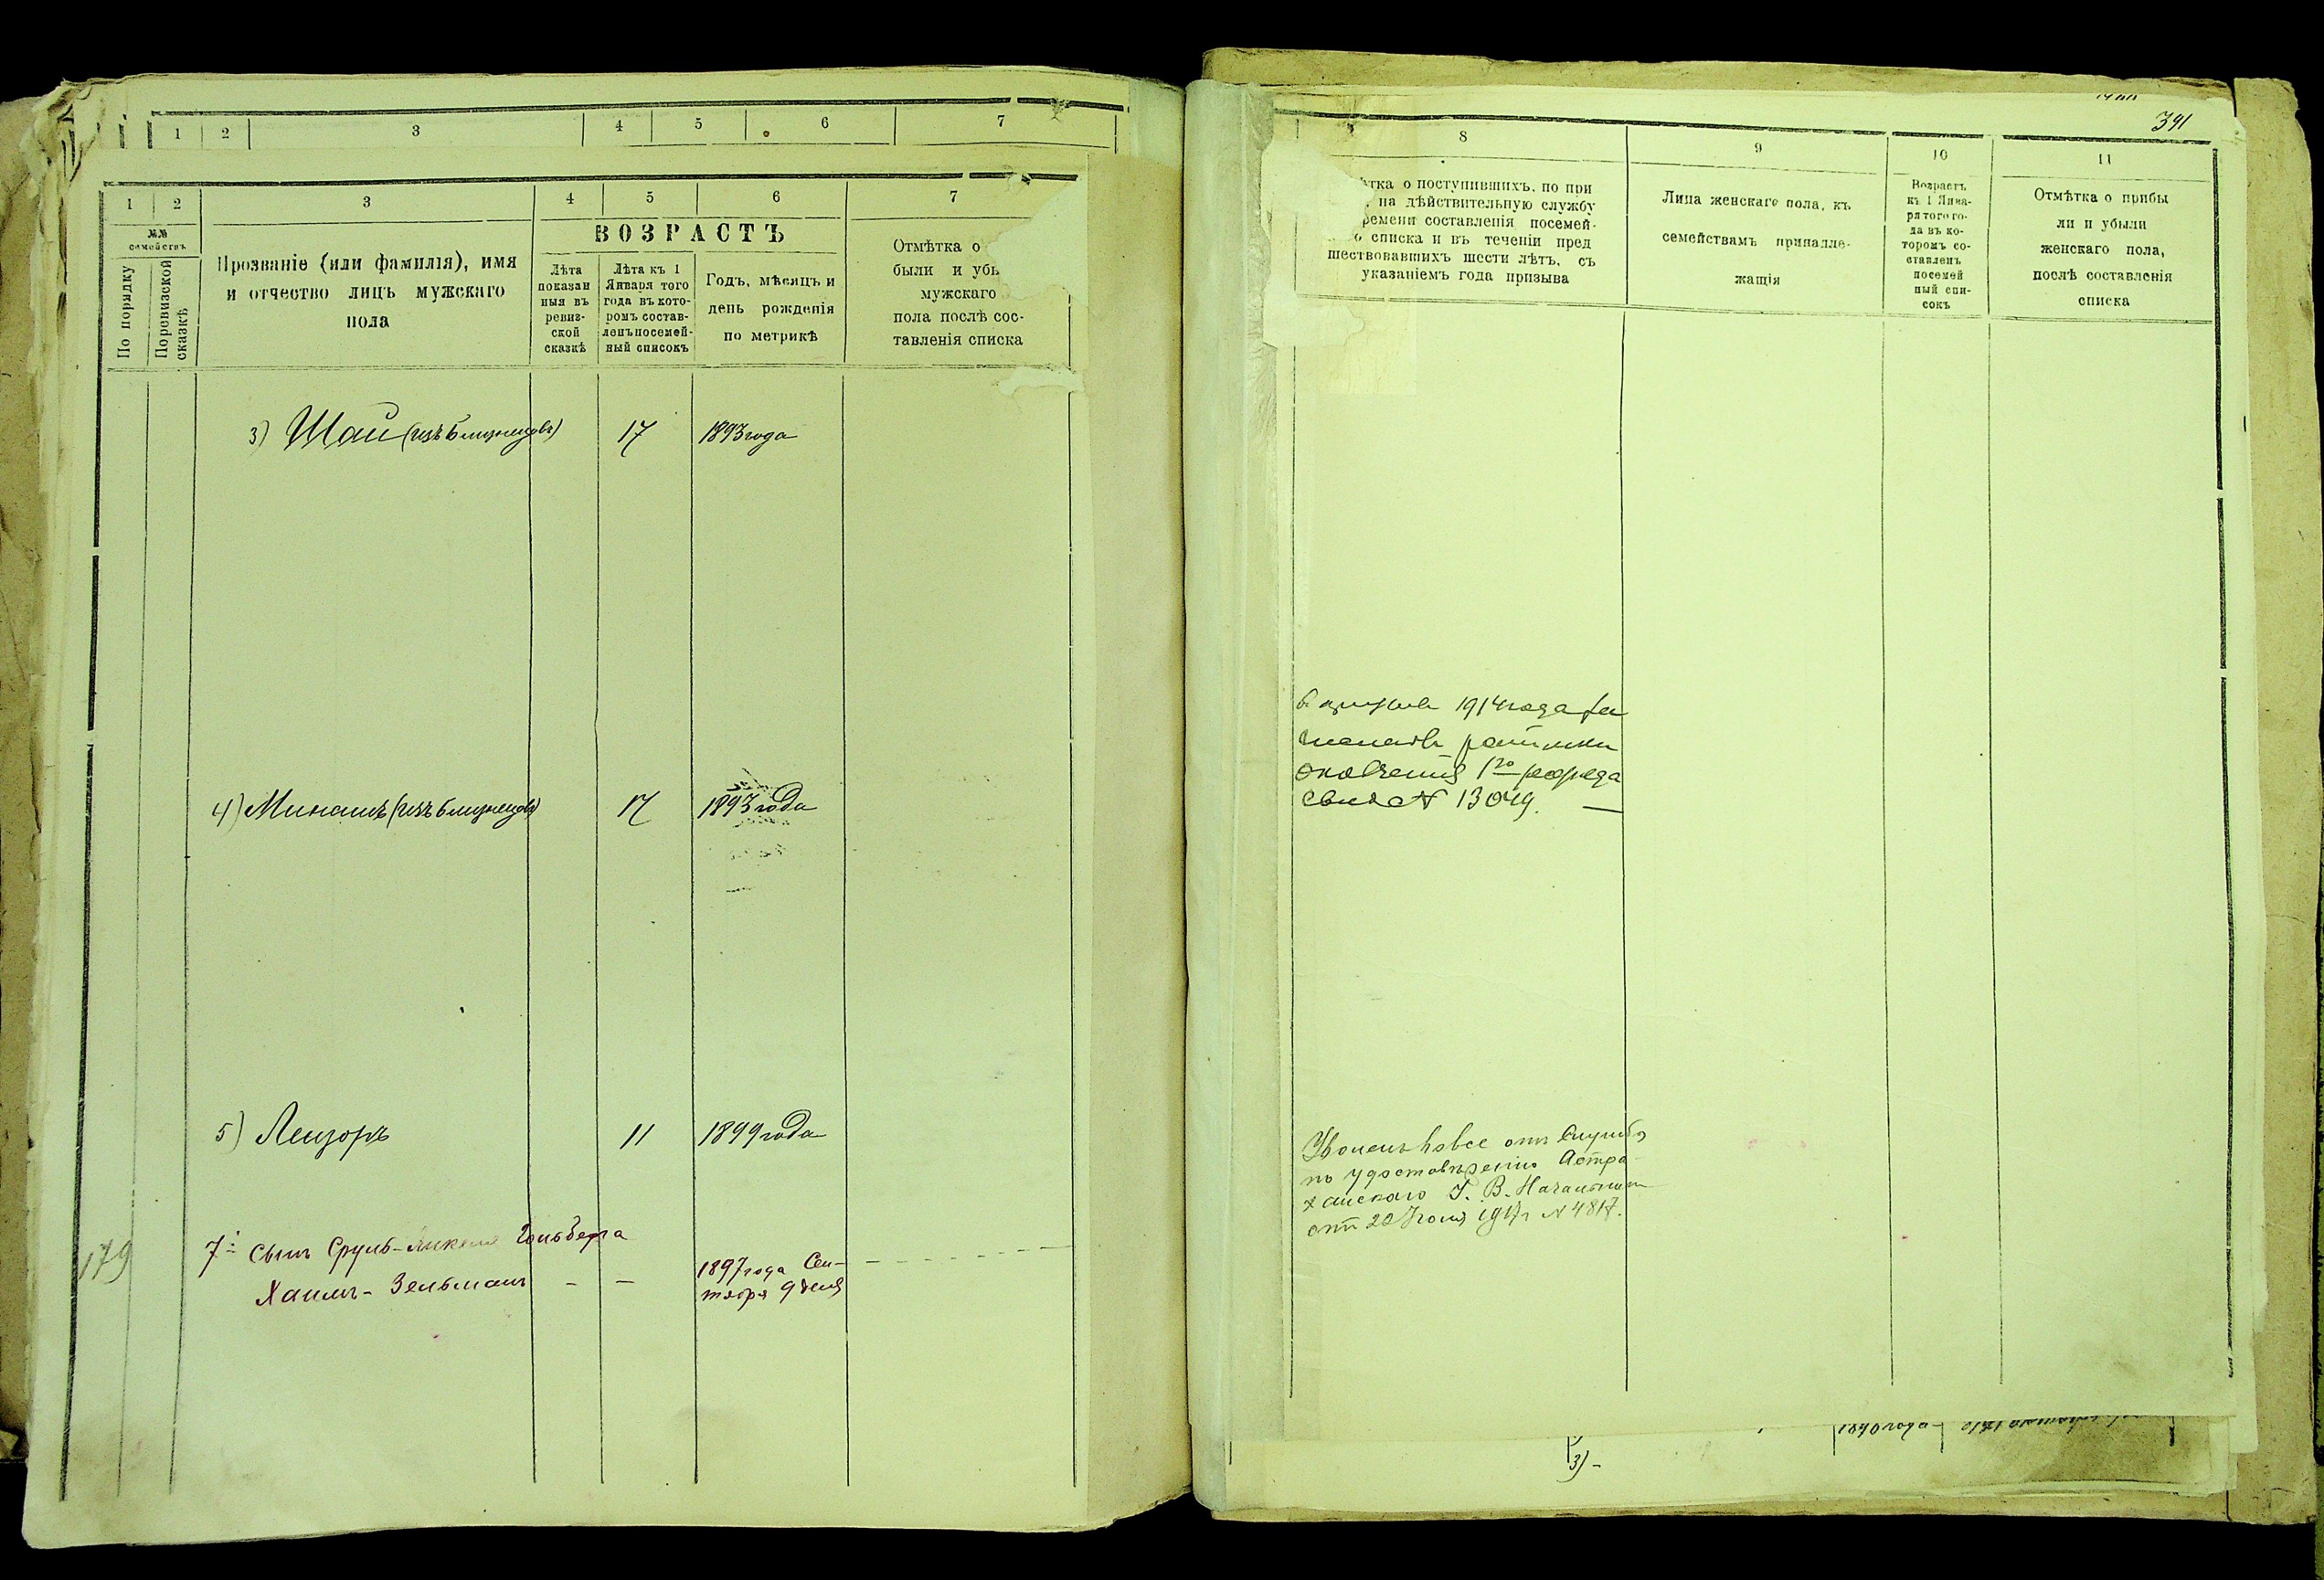 1 2 3 4 5 6 7
1 2 3 4 5 6 7
№№ семействъ
По порядку
По ревизской сказкѣ
Прозваніе (или фамилія), имя
и отчество лицъ мужскаго
пола
ВОЗРАСТЪ
Лѣта
показан
ныя въ
ревиз-
ской
сказкѣ
Лѣта къ 1
Января того
года въ кото-
ромъ состав-
ленъ посемей-
ный списокъ
Годъ, мѣсяцъ и
день рожденія
по метрикѣ
Отмѣтка о
были и убы
мужскаго
пола послѣ сос-
тавленія списка
3) Шай (изъ близнецовъ) 17 1893 года
4) Минашъ (изъ близнецовъ) 17 1893 года
5) Лейзоръ 11 1899 года
179 7. Сынъ Сруль- Гольберга
Хаимъ-Зельманъ - - 1897 года Сен-
тября 9 дня
391
8 9 10 11
ѣтка о поступившихъ, по при
на дѣйствительную службу
ремени составленія посемей-
о списка и въ теченіи пред
шествовавшихъ шести лѣтъ, съ
указаніемъ года призыва
Лица женскаго пола, къ
семействамъ принадле-
жащія
Возрастъ
къ 1 Янва-
ря того го-
да въ ко-
торомъ со-
ставленъ
посемей
ный спи-
сокъ
Отмѣтка о прибы
ли и убыли
женскаго пола,
послѣ составленія
списка
въ призывъ 1914 года за
ратники
ополченія 1го разряда
свид № 13049. —
Уволенъ вовсе отъ службы
по удостовѣренію Астра-
ханскаго У. В. Начальника
отъ 20 1917 г № 4817.
1890 года
3) -